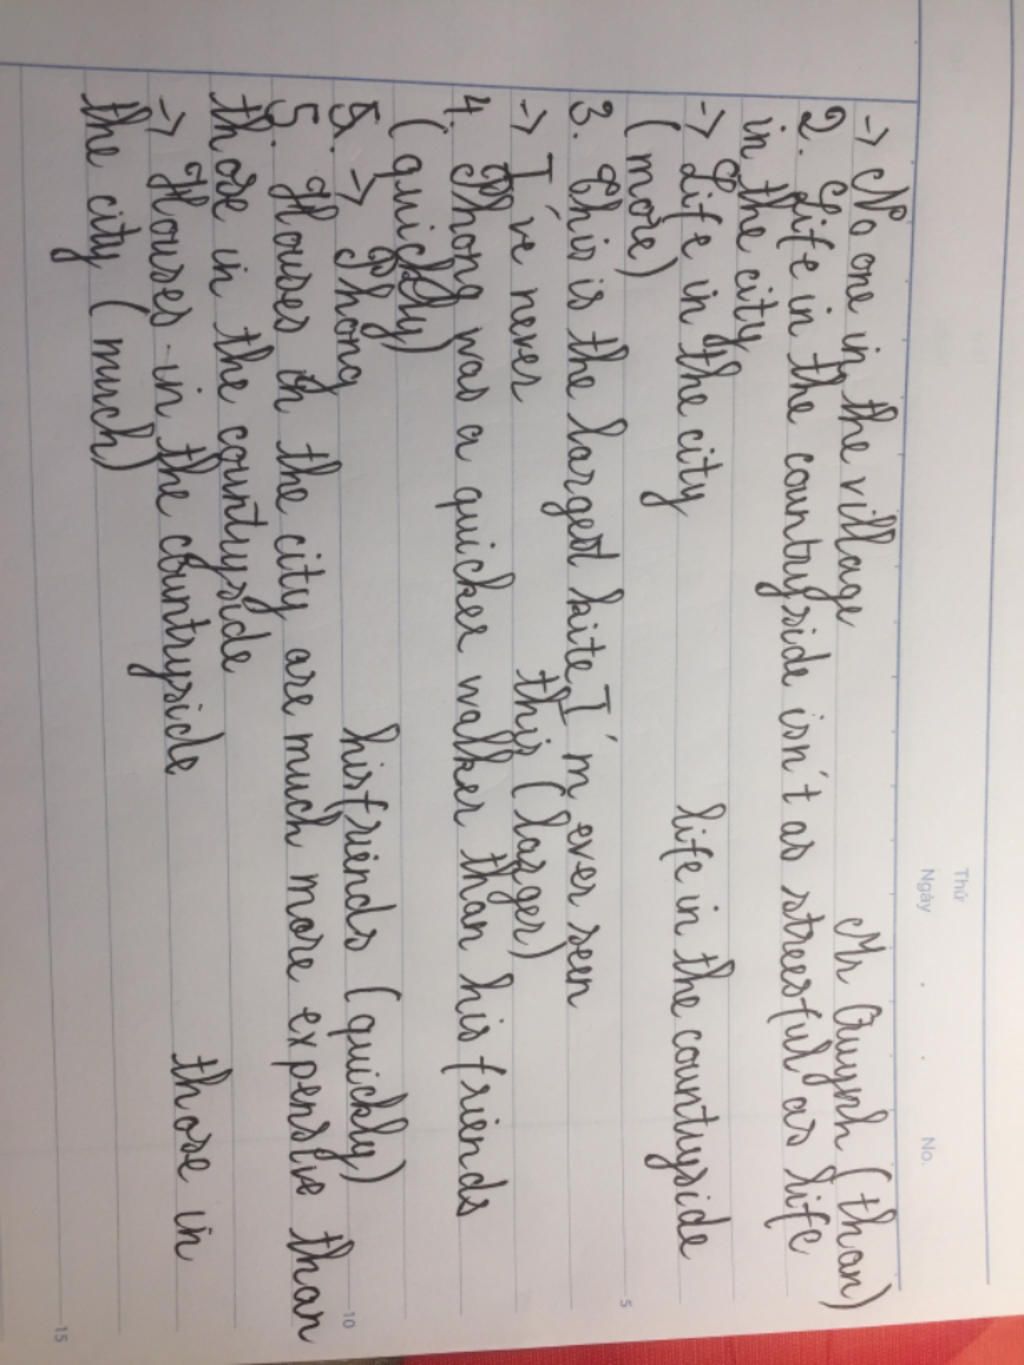 Thứ
Ngày . . No.
→ No one in the village Mr Quynh (than)
2. Life in the countryside isn't as stressful as life
in the city
→ Life in the city life in the countryside
(more)
3. This is the largest kite I'm ever seen
→ I've never this (larger)
4. Phong was a quicker walker than his friends
(quickly)
5. → Phong his friends (quickly)
5. Houses in the city are much more expensive than
those in the countryside
→ Houses in the countryside those in
the city (much)
5
10
15